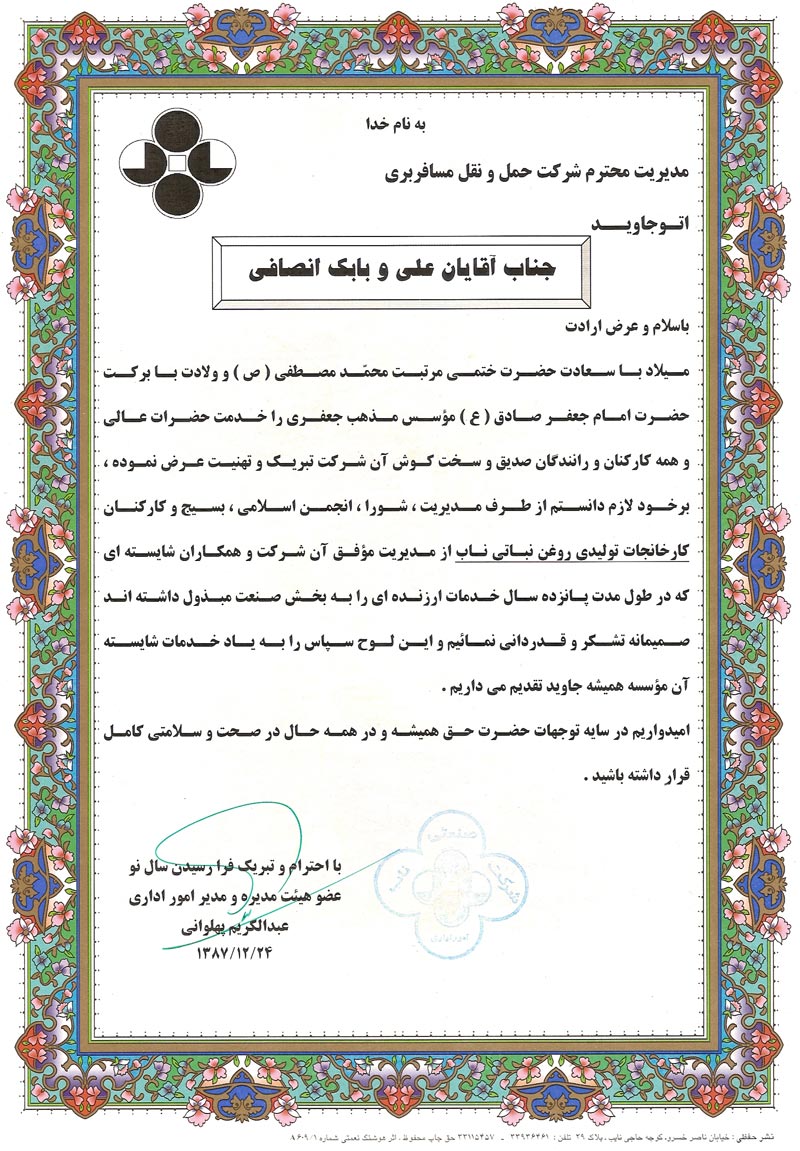 به نام خدا
مدیریت محترم شرکت حمل و نقل مسافربری
اتوجاویـــد
جناب آقایان علی و بابک انصافی
باسلام و عرض ارادت
میلاد با سعادت حضرت ختمی مرتبت محمّد مصطفی ( ص ) و ولادت با برکت
حضرت امام جعفر صادق ( ع ) مؤسس مذهب جعفری را خدمت حضرات عالی
و همه کارکنان و رانندگان صدیق و سخت کوش آن شرکت تبریک و تهنیت عرض نموده ،
برخود لازم دانستم از طرف مدیریت ، شورا ، انجمن اسلامی ، بسیج و کارکنان
کارخانجات تولیدی روغن نباتی ناب از مدیریت مؤفق آن شرکت و همکاران شایسته ای
که در طول مدت پانزده سال خدمات ارزنده ای را به بخش صنعت مبذول داشته اند
صمیمانه تشکر و قدردانی نمائیم و این لوح سپاس را به یاد خدمات شایسته
آن مؤسسه همیشه جاوید تقدیم می داریم .
امیدواریم در سایه توجهات حضرت حق همیشه و در همه حال در صحت و سلامتی کامل
قرار داشته باشید .
با احترام و تبریک فرا رسیدن سال نو
عضو هیئت مدیره و مدیر امور اداری
عبدالکریم پهلوانی
۱۳۸۷/۱۲/۲۴
صنعتی
شرکت
ناب
امور اداری
نشر حفظی : خیابان ناصر خسرو، کوچه حاجی نایب ، پلاک ۲۹ تلفن : ۳۳۹۳۶۳۶۱ - ۳۳۱۱۵۴۵۷ حق چاپ محفوظ ، اثر هوشنگ نعمتی شماره ۸۶۰۹/۱